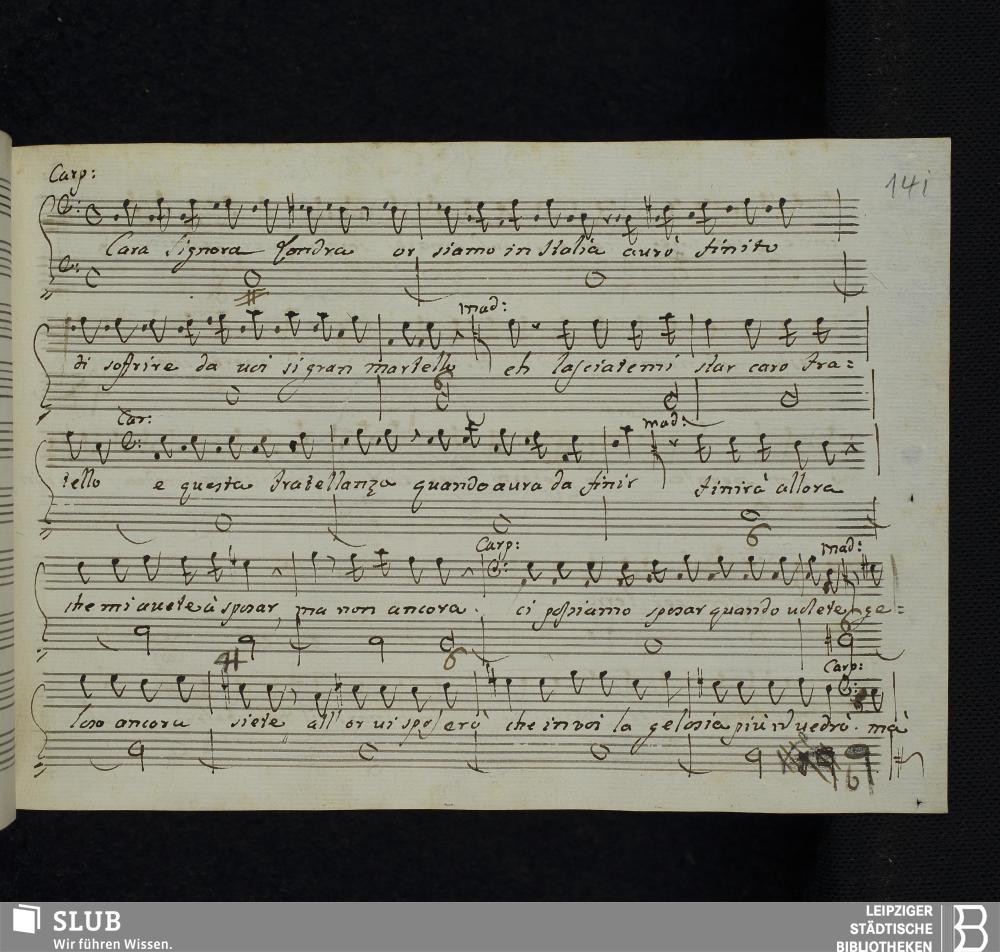 Carp:
141
Cara Signora Londra or siamo in Italia aurò finito
mad:
di soffrire da uoi si gran martello eh lasciatemi star caro fra=
Car: mad:
tello e questa fratellanza quando aura da finir finirà allora
Carp: mad:
che mi auete à sposar ma non ancora. ci possiamo sposar quando uolete ge=
Carp:
loso ancora siete all'or ui sposerò che in voi la gelosia più uedrò. mà
SLUB
Wir führen Wissen.
LEIPZIGER
STÄDTISCHE
BIBLIOTHEKEN